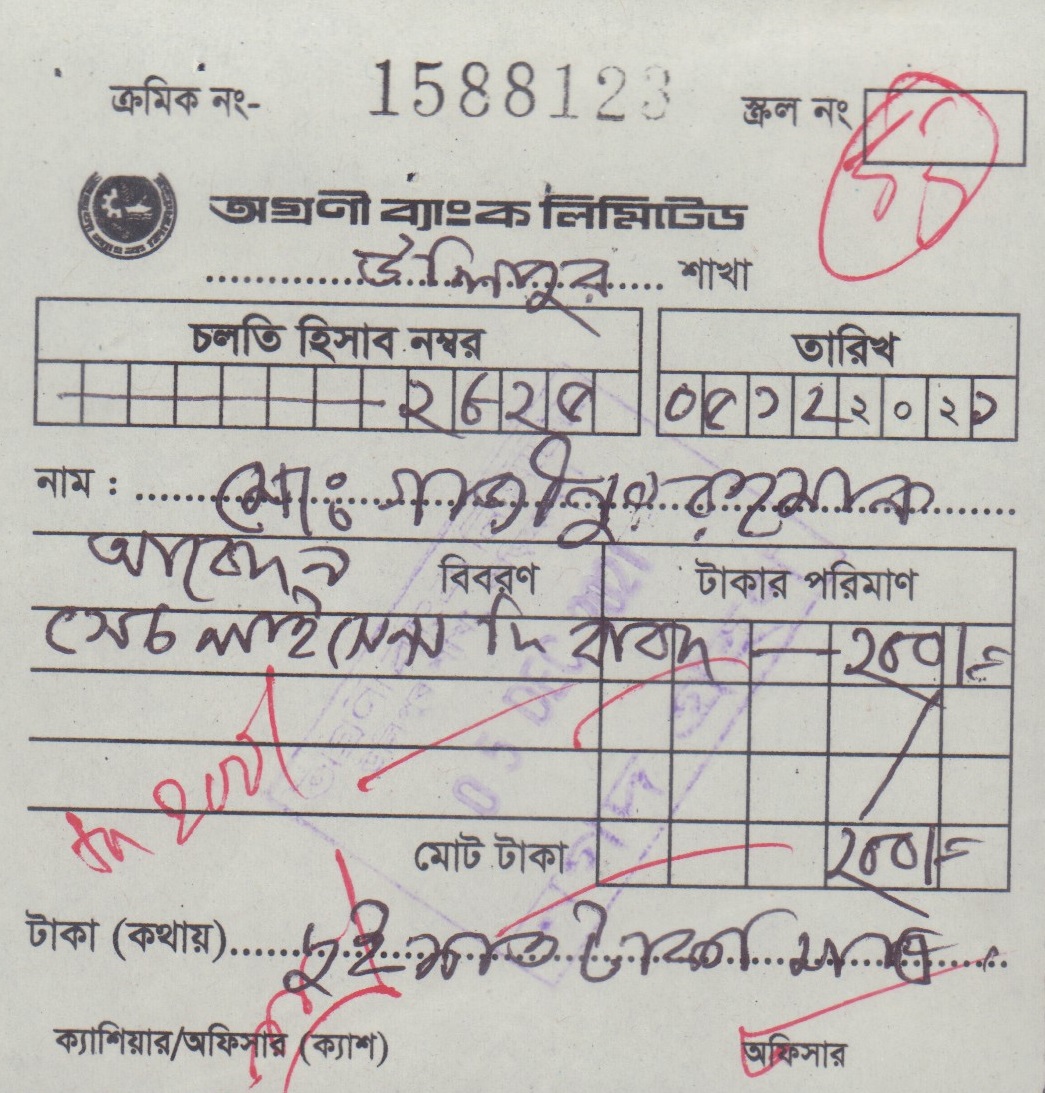 ক্রমিক নং- 1588123 স্ক্রল নং
অগ্রণী ব্যাংক লিমিটেড
উলিপুর শাখা
চলতি হিসাব নম্বর তারিখ
২৬২৫ ০৫১২২০২১
নাম : মোঃ রহমান
আবেদন বিবরণ টাকার পরিমাণ
সেচ লাইসেন্স ফি বাবদ — ২০০/=
05 DEC 2021
মোট টাকা ২০০/=
টাকা (কথায়) দুই শত টাকা মাত্র
ক্যাশিয়ার/অফিসার (ক্যাশ) অফিসার